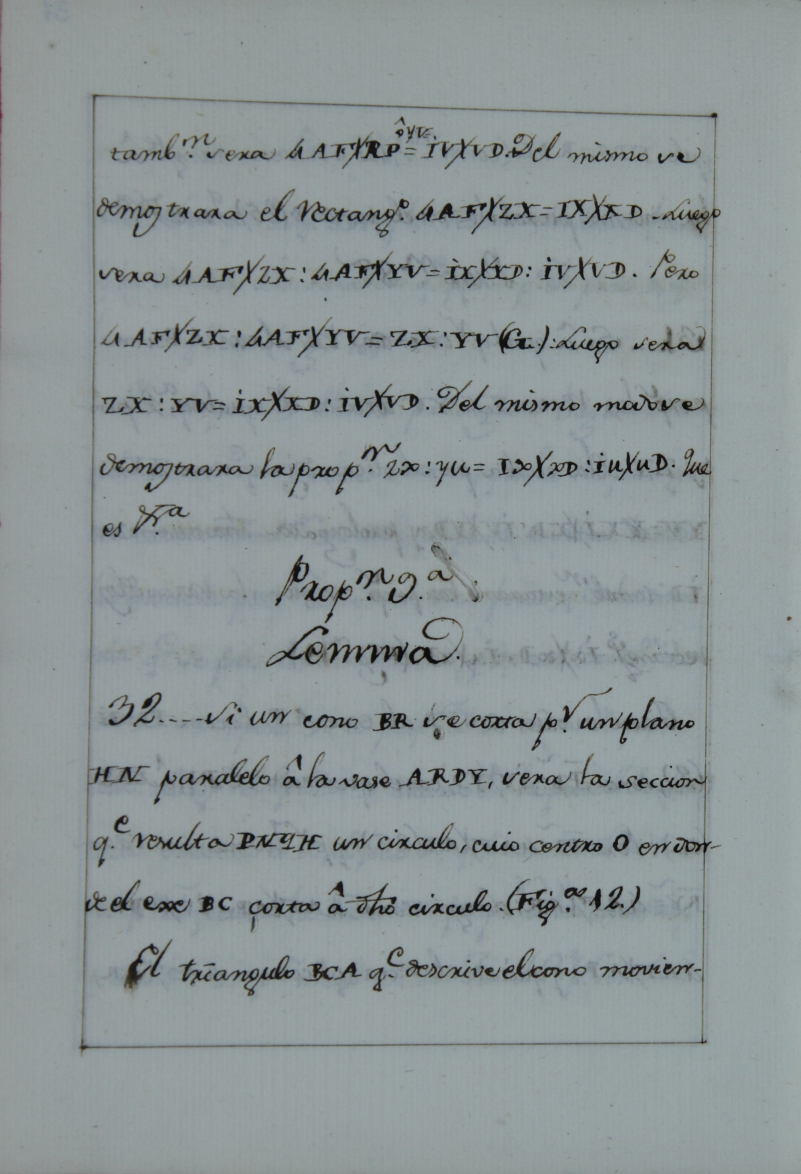 ô YV
tamb.n vera 4AF╳RP = IV╳VD. Del mismo se
demostrara el Rectang.o 4AF╳ZX = IX╳XD. Luego
vera 4AF╳ZX : 4AF╳YV = IX╳XD : IV╳VD. Pero
4AF╳ZX : 4AF╳YV = ZX : YV (G.) : Luego vera
ZX : YV = IX╳XD : IV╳VD. Del mismo modo se
demostrara la prop.n zx : yu = Ix╳xD : Iu╳uD. Que
es &.a
Prop.n 9.a
Lemma.
32....Si un cono BR se corta p.r un plano
HN paralelo â la vase ARDY, vera la seccion
q.e resulta PNQH un circulo, cuio centro O en don-
de el exe BC corta â dho circulo. (Fig.a 12.)
El triangulo BCA q.e descrive el cono movien-